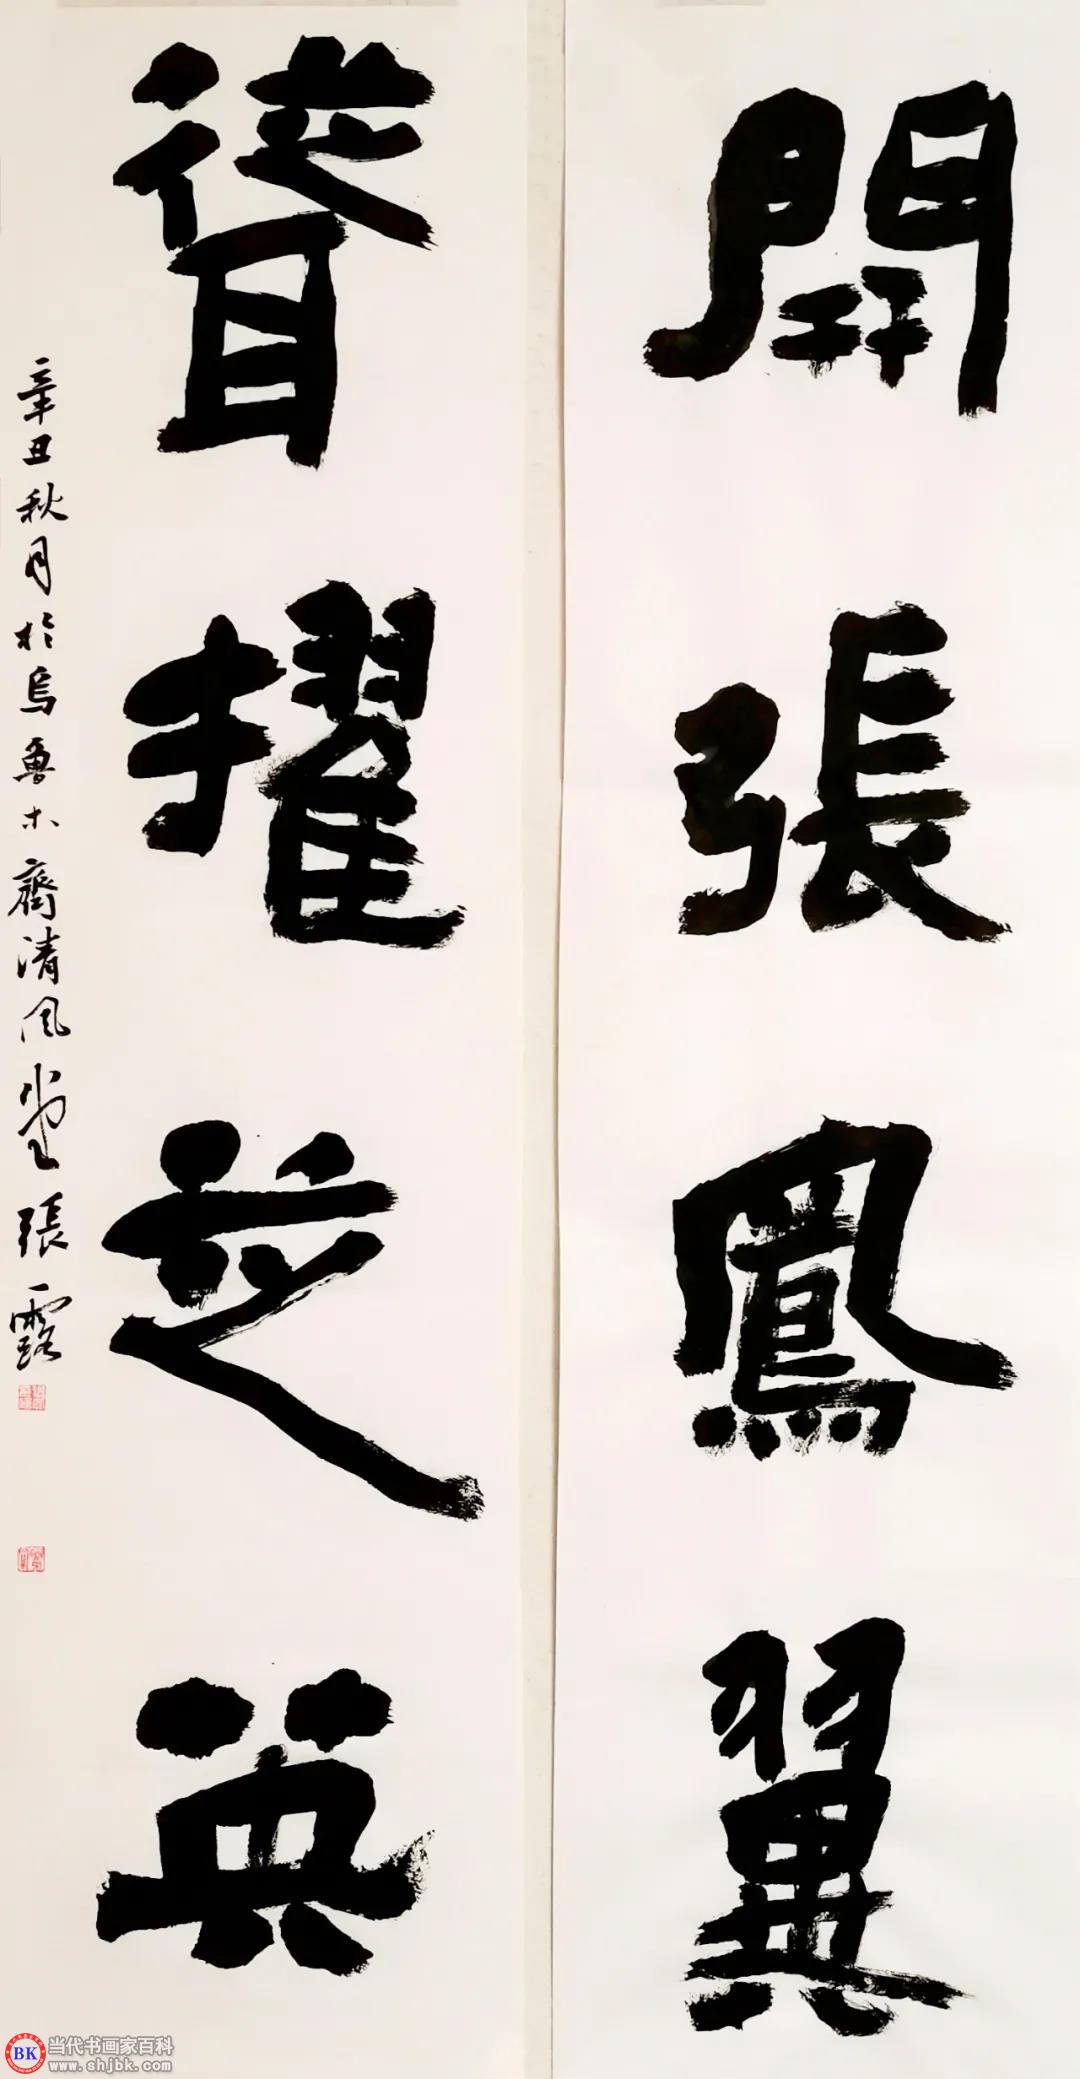 開張鳳翼
聳擢芝英
辛丑秋月於烏魯木齊清風堂張露
BK
当代书画家百科
www.shjbk.com